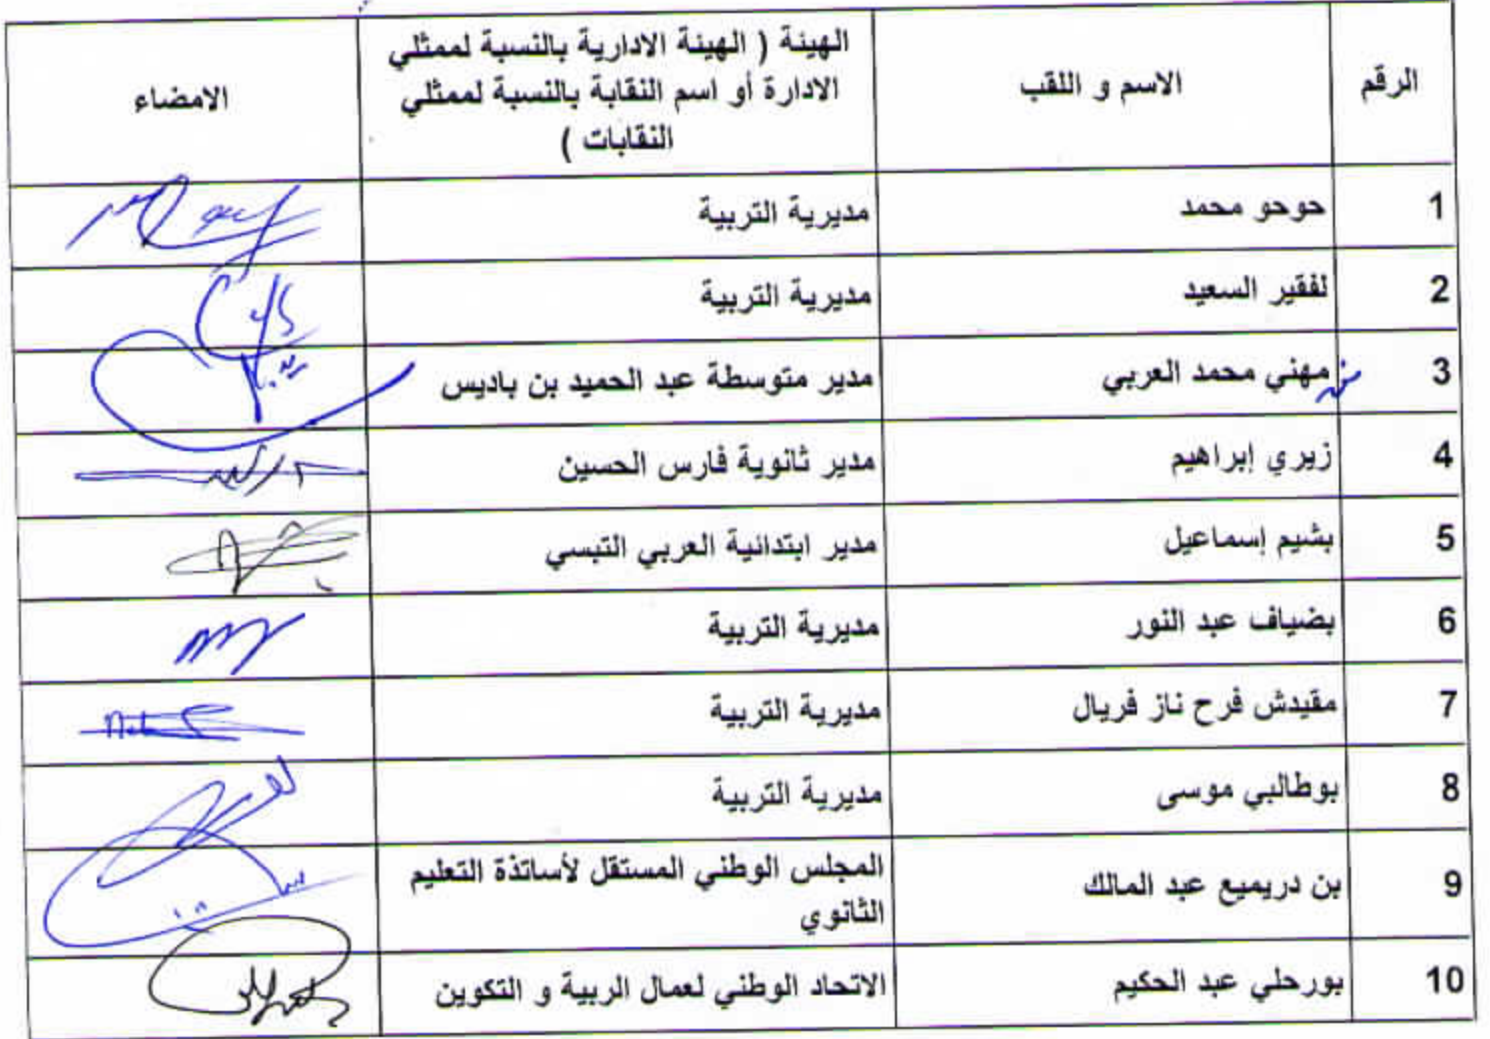 الرقم
الاسم و اللقب
الهيئة ( الهيئة الادارية بالنسبة لممثلي
الادارة أو اسم النقابة بالنسبة لممثلي
النقابات )
الامضاء
1 حوحو محمد مديرية التربية
2 لفقير السعيد مديرية التربية
3 مهني محمد العربي مدير متوسطة عبد الحميد بن باديس
4 زيري إبراهيم مدير ثانوية فارس الحسين
5 بشيم إسماعيل مدير ابتدائية العربي التبسي
6 بضياف عبد النور مديرية التربية
7 مقيدش فرح ناز فريال مديرية التربية
8 بوطالبي موسى مديرية التربية
9 بن دريميع عبد المالك المجلس الوطني المستقل لأساتذة التعليم
الثانوي
10 بورحلي عبد الحكيم الاتحاد الوطني لعمال الربية و التكوين